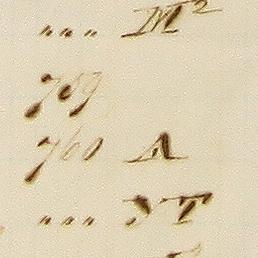 " " " M²
759
760 A
" " " T